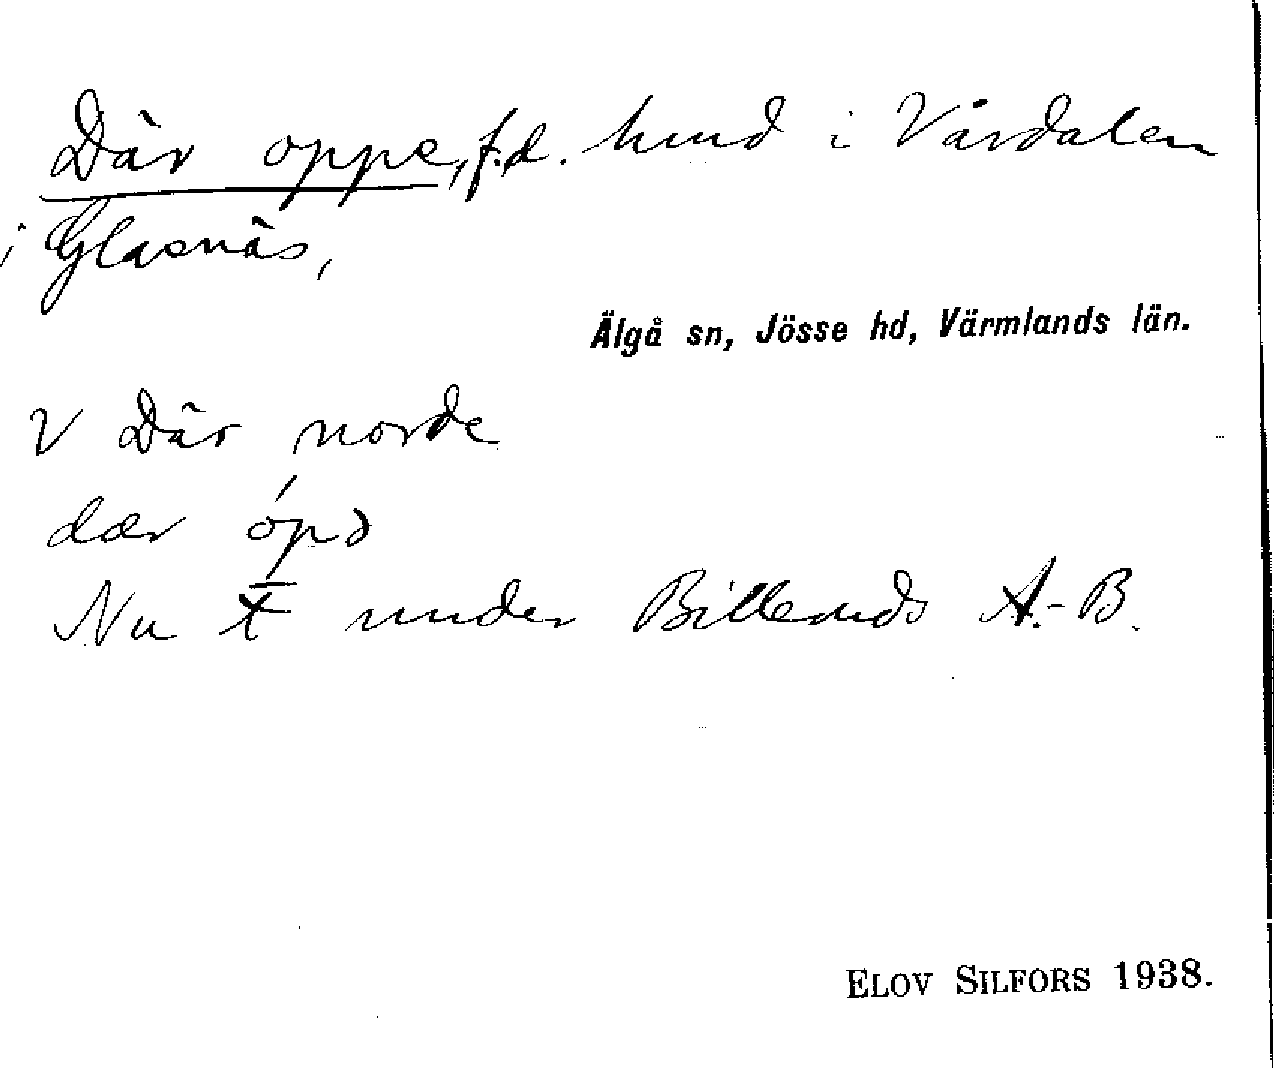 Där oppe, f.d. hmd i Vårdalen
i Glasnäs,
Älgå sn, Jösse hd, Värmlands län.
V Där norde
dær
Nu under Billeruds A.-B.
ELOV SILFORS 1938.